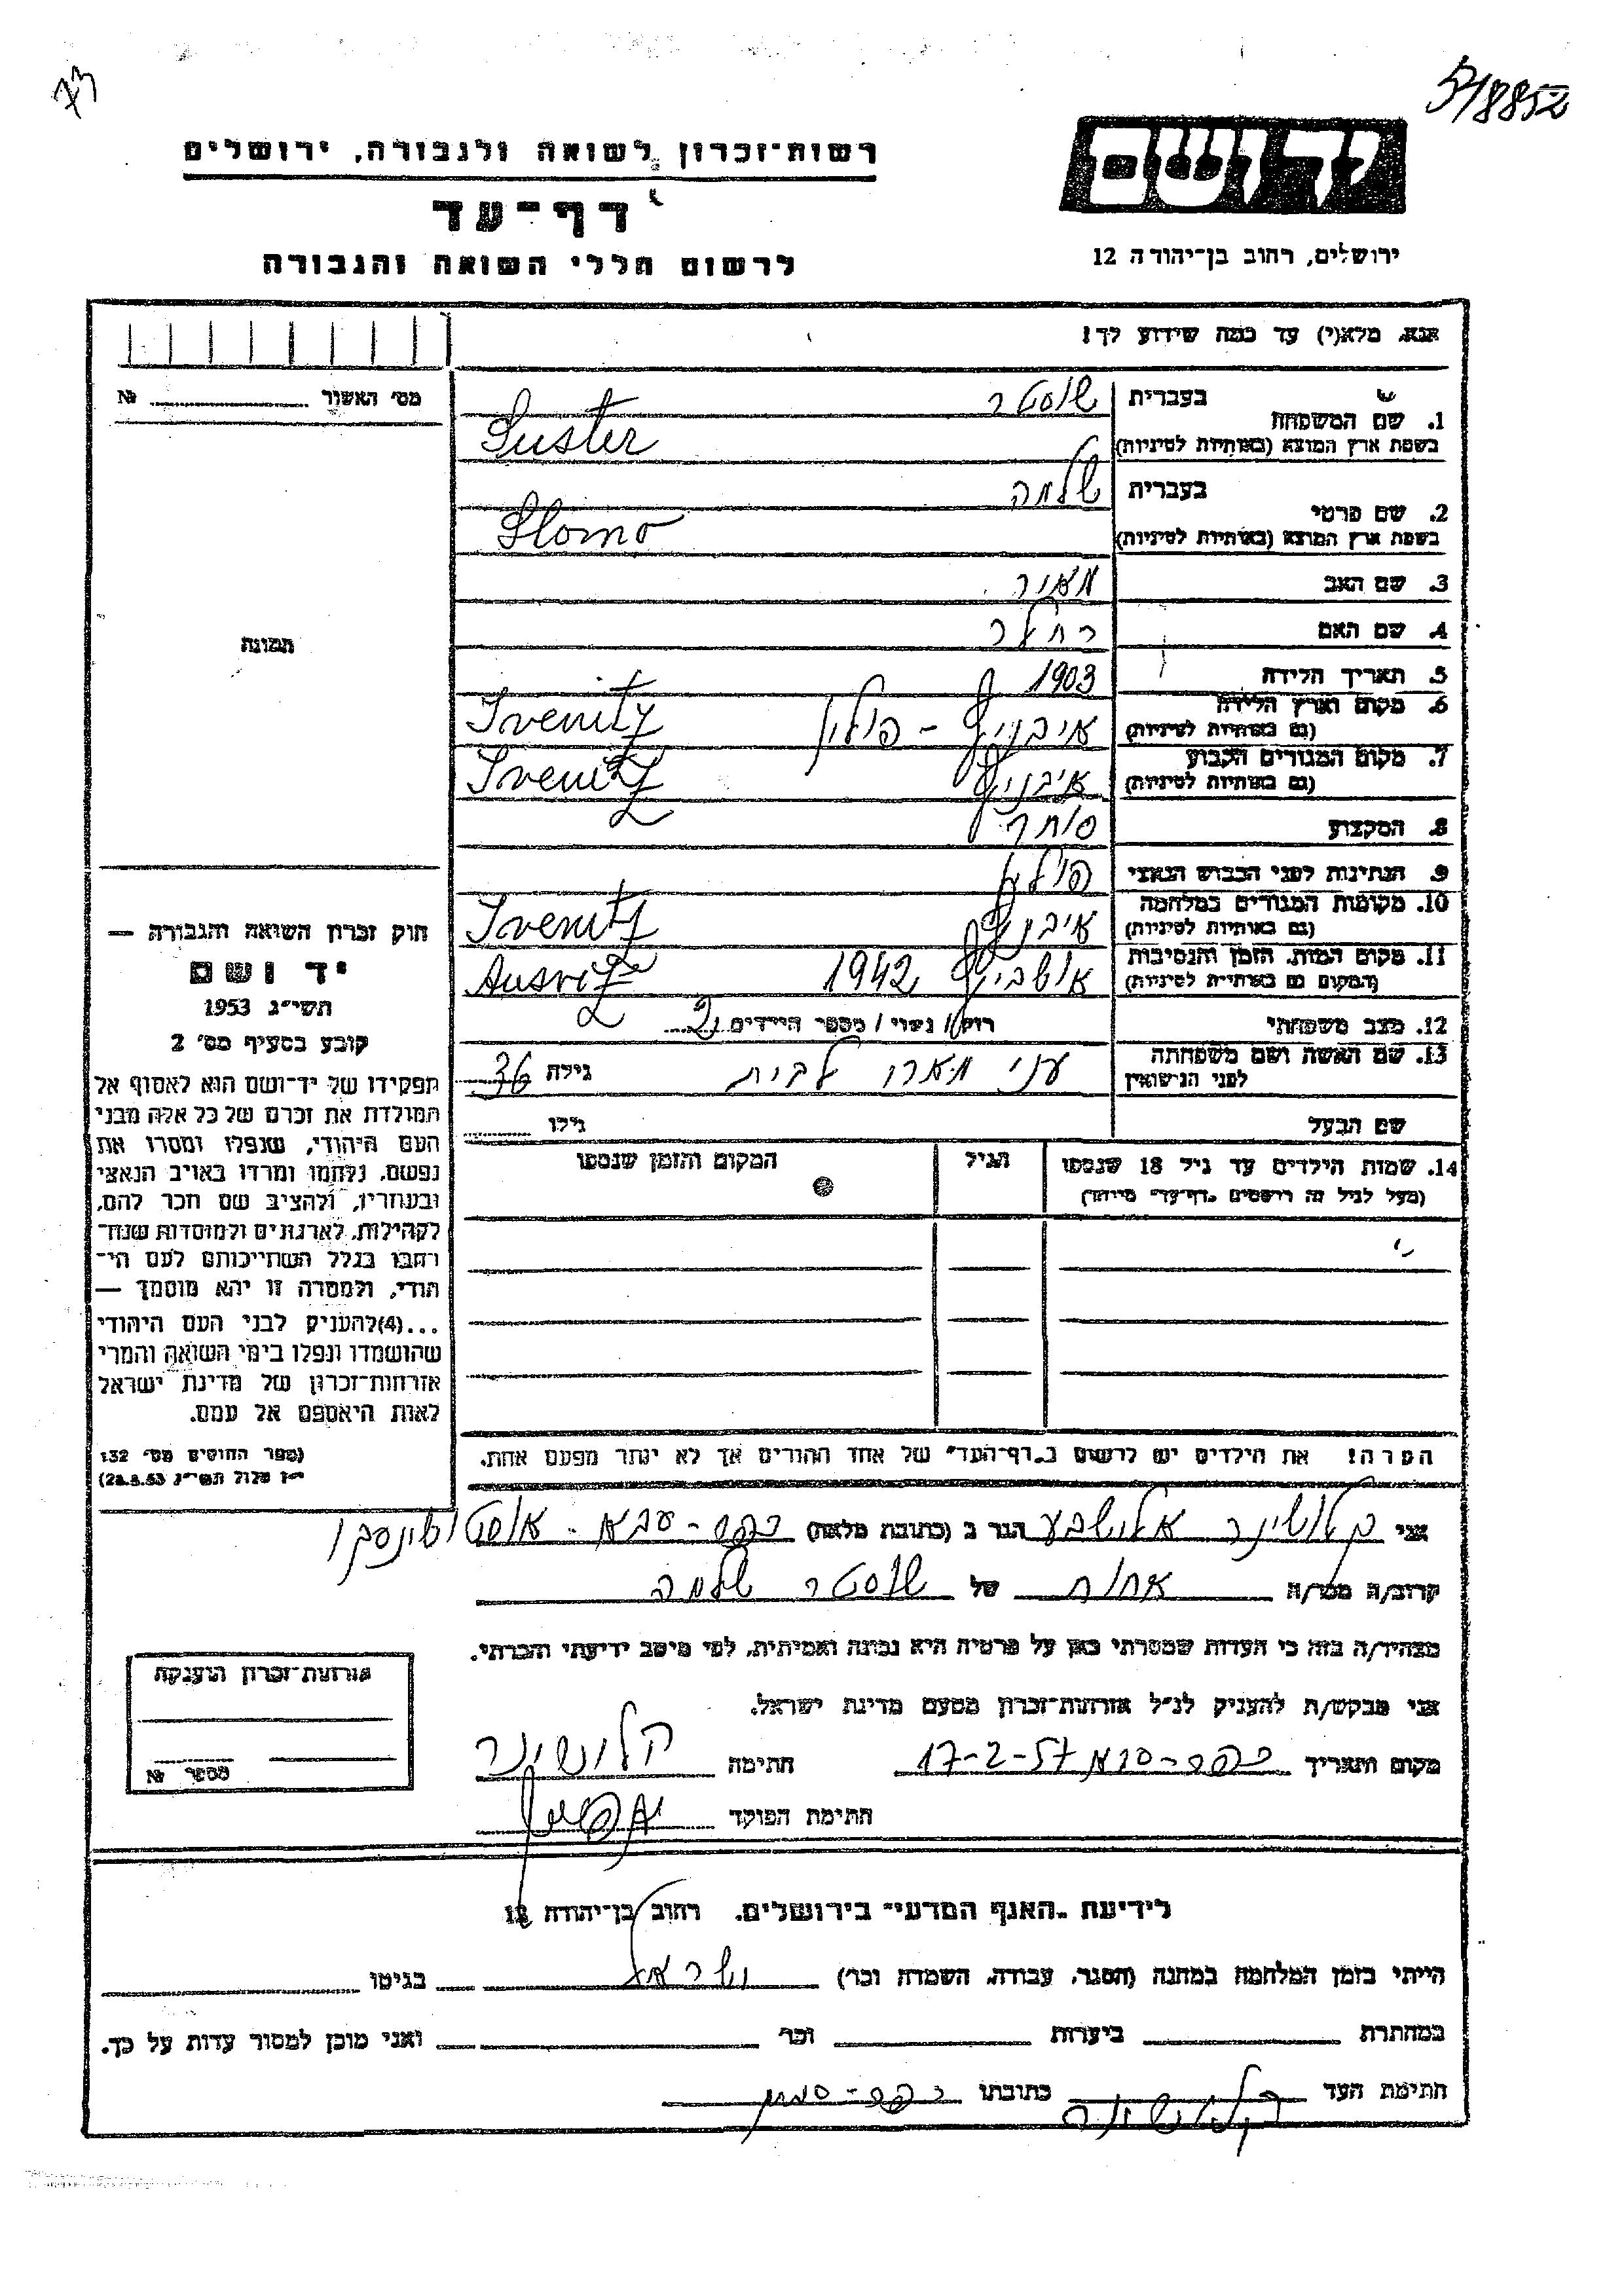 73
518852
רשות־זכרון לשואה ולגבורה, ירושלים
יד ושם
דף־עד
לרשום חללי השואה והגבורה
ירושלים, רחוב בן־יהודה 12
אנא, מלא(י) עד כמה שידוע לך!
מס' האשור № 
1. שם המשפחה בעברית שוסטר
בשפת ארץ המוצא (באותיות לטיניות) Suster
2. שם פרטי בעברית שלמה
בשפת ארץ המוצא (באותיות לטיניות) Slomo
3. שם האב מאיר
4. שם האם
5. תאריך הלידה 1903
6. מקום וארץ הלידה (גם באותיות לטיניות) איבניץ - פולין Ivenitz
7. מקום המגורים הקבוע (גם באותיות לטיניות) איבניץ Ivenitz
8. המקצוע סוחר
9. הנתינות לפני הכבוש הנאצי פולין
10. מקומות המגורים במלחמה (גם באותיות לטיניות) איבניץ Ivenitz
11. מקום המות, הזמן והנסיבות (המקום גם באותיות לטיניות) אושביץ 1942 Ausvitz
12. מצב משפחתי רווק / נשוי / מספר הילדים 2
13. שם האשה ושם משפחתה לפני הנישואין לבית גילה 36
שם הבעל גילו
14. שמות הילדים עד גיל 18 שנספו הגיל המקום והזמן שנספו
(מעל לגיל זה רושמים "דף־עד" מיוחד)
הערה! את הילדים יש לרשום ב"דף־העד" של אחד ההורים אך לא יותר מפעם אחת.
תמונה
חוק זכרון השואה והגבורה —
יד ושם
תשי"ג 1953
קובע בסעיף מס' 2
תפקידו של יד־ושם הוא לאסוף אל
המולדת את זכרם של כל אלה מבני
העם היהודי, שנפלו ומסרו את
נפשם, נלחמו ומרדו באויב הנאצי
ובעוזריו, ולהציב שם וזכר להם,
לקהילות, לארגונים ולמוסדות שנח־
רבו בגלל השתייכותם לעם הי־
הודי, ולמטרה זו יהא מוסמך —
...(4) להעניק לבני העם היהודי
שהושמדו ונפלו בימי השואה והמרי
אזרחות־זכרון של מדינת ישראל
לאות היאספם אל עמם.
(ספר החוקים מס' 132
י"ז אלול תשי"ג 28.8.53)
אני קלושינר אלישבע הגר ב (כתובת מלאה) כפר-סבא - אוסטשינסקי
קרוב/ה מכר/ה אחות של שוסטר שלמה
מצהיר/ה בזה כי העדות שמסרתי כאן על פרטיה היא נכונה ואמיתית, לפי מיטב ידיעתי והכרתי.
אני מבקש/ת להעניק לנ"ל אזרחות־זכרון מטעם מדינת ישראל.
מקום ותאריך כפר-סבא 17-2-57 חתימה קלושינר
חתימת הפוקד
אזרחות־זכרון הוענקה
מספר №
לידיעת "האגף המדעי" בירושלים, רחוב בן־יהודה 12
הייתי בזמן המלחמה במחנה (הסגר, עבודה, השמדה וכו') ישראל בגיטו
במחתרת ביערות וכו' ואני מוכן למסור עדות על כך.
חתימת העד קלושינר כתובתו כפר-סבא